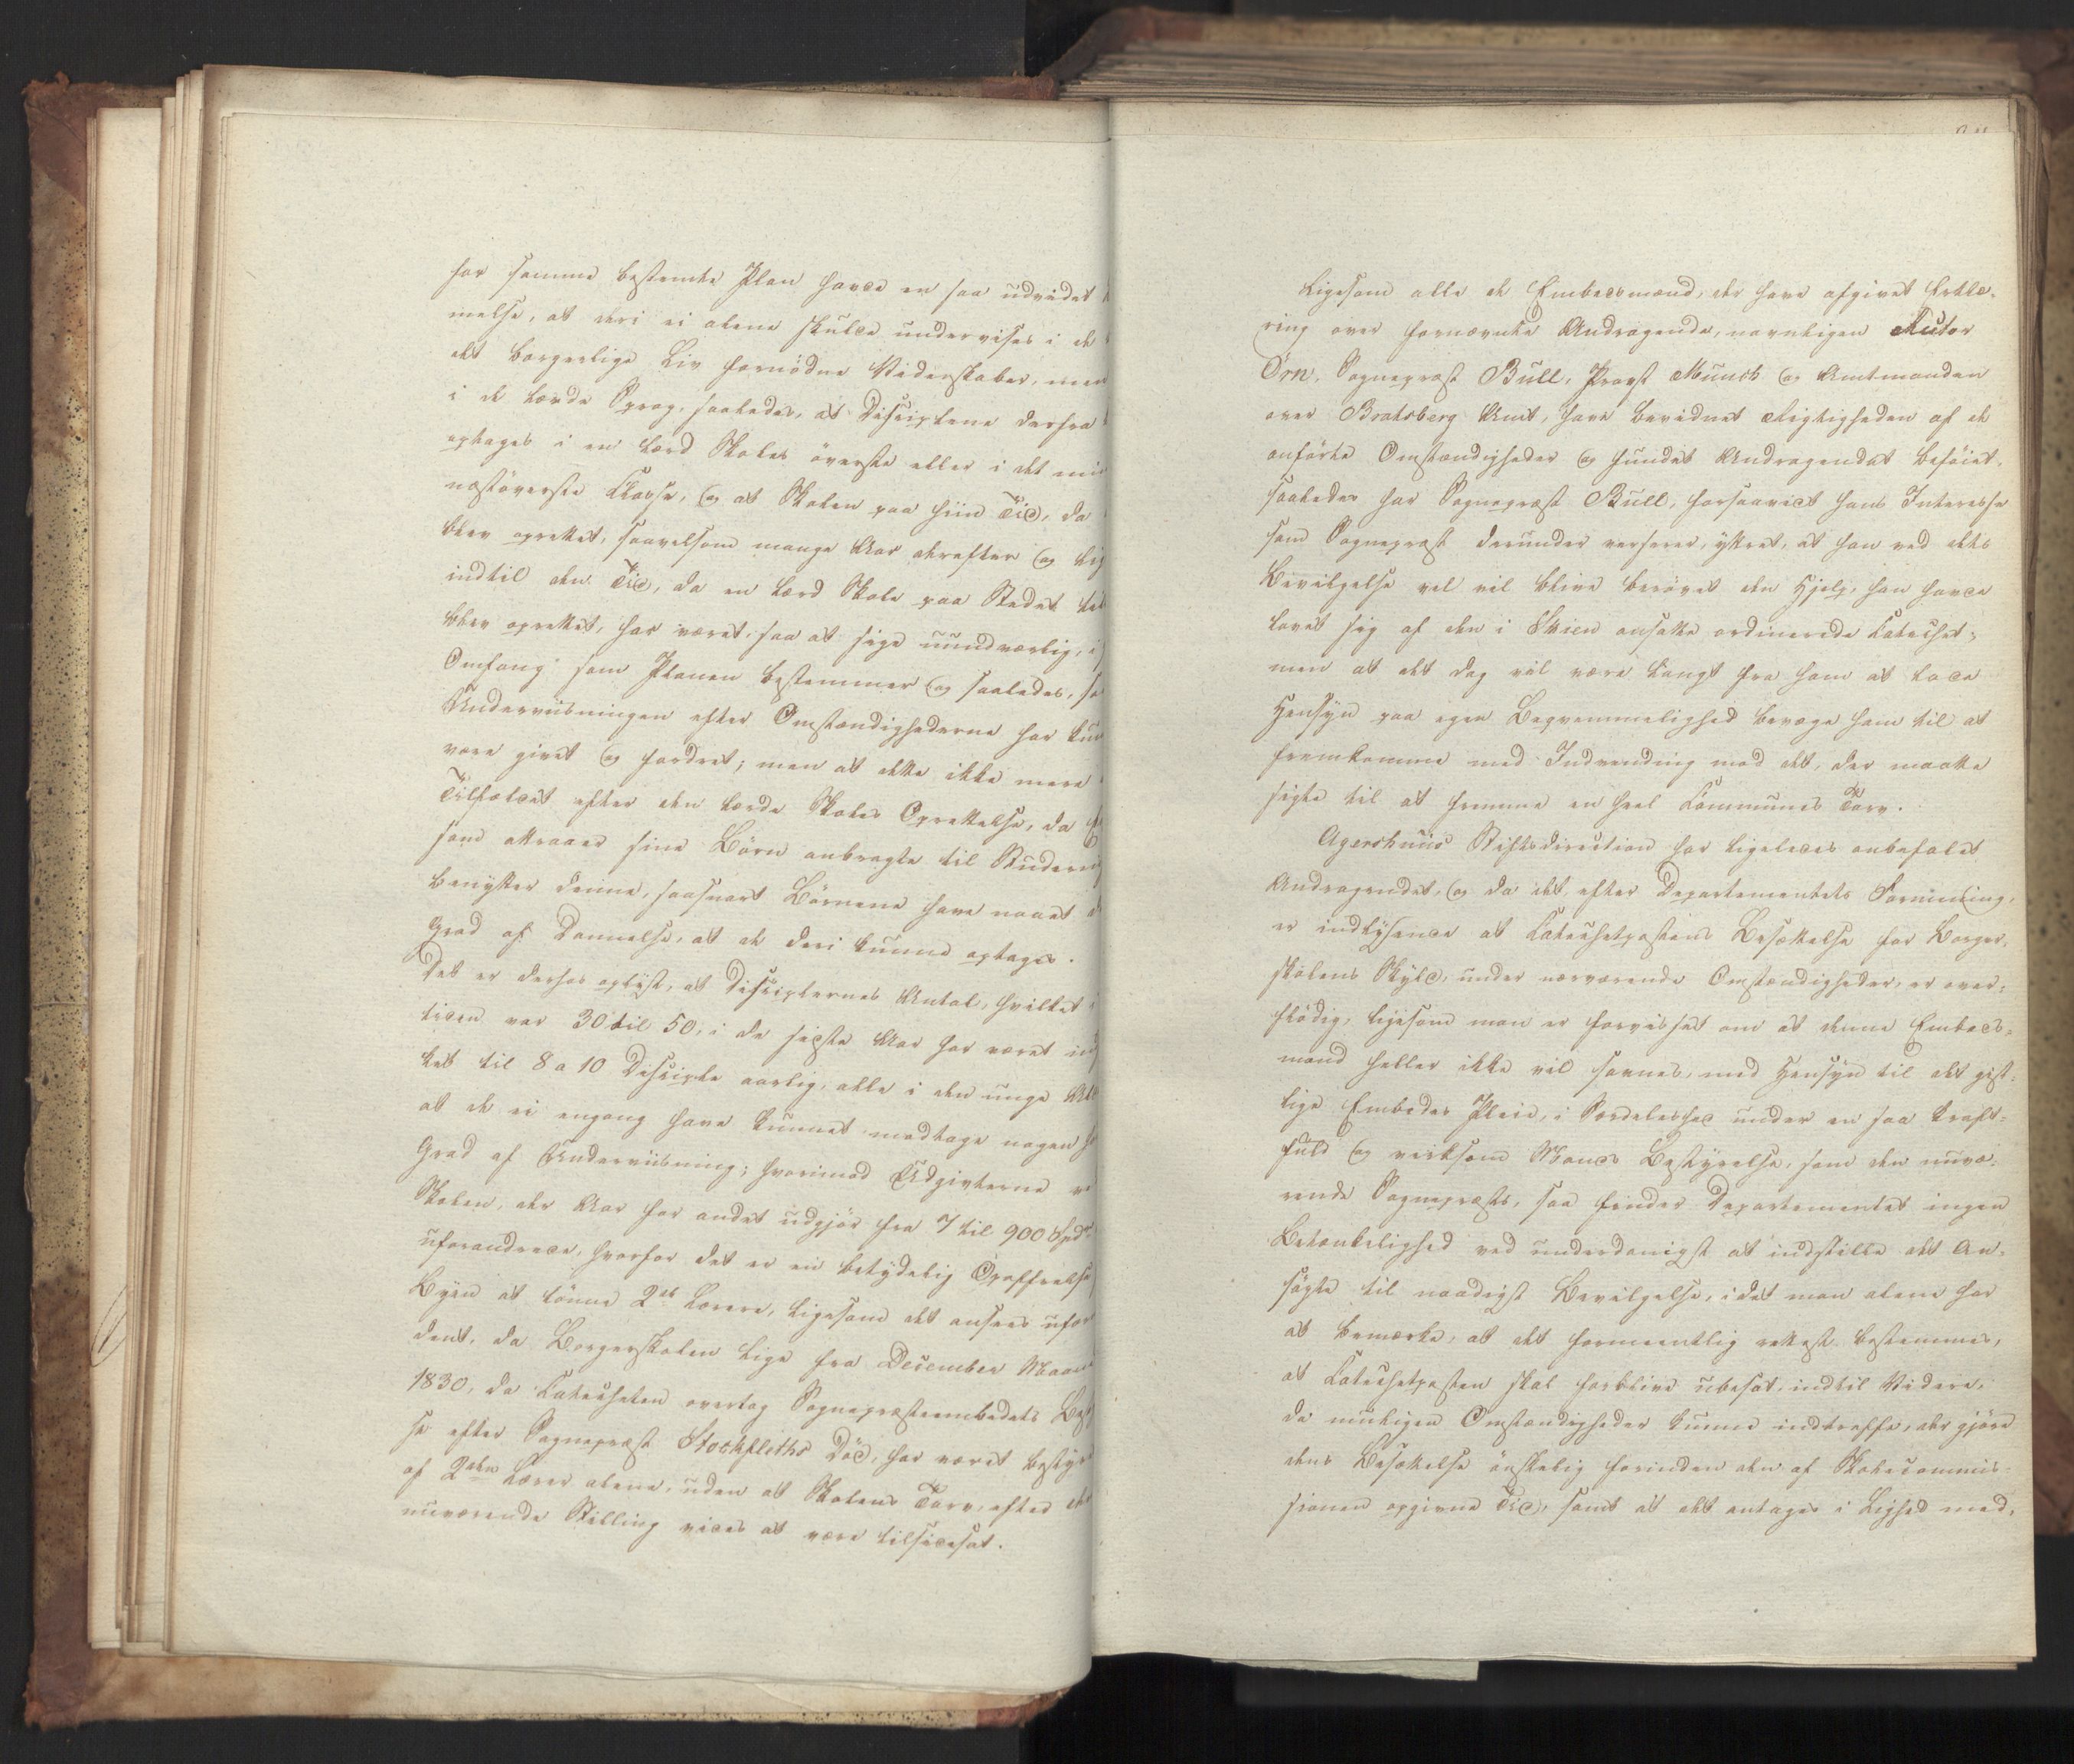 for samme bestemte Plan havde en saa udvidet
melse, at deri ei alene skulde undervises i de
det borgerlige Liv fornödne Videnskaber, men
i de lærde Sprog, saaledes, at Disciplene derfra
optages i en lærd Skoles överste eller i det min
næstöverste Classe, og at Skolen paa hiin Tid, da
blev oprettet, saavelsom mange Aar derefter og lig
indtil den Tid, da en lærd Skole paa Stedet
blev oprettet, har været, saa at sige uundværlig, i
Omfang som Planen bestemmer og saaledes, so
Underviisningen efter Omstændighederne har kun
være givet og fordret; men at dette ikke mere
Tilfældet efter den lærde Skoles Oprettelse, da
som attraaer sine Börn anbragte til Studering
benytter denne, saasnart Börnene have naaet
Grad af Dannelse, at de deri kunne optages.
Det er derhos oplyst, at Disciplernes Antal, hvilket
tiden var 30 til 50, i de sidste Aar har været ind
ket til 8 a 10 Disciple aarlig, alle i den unge Al
at de ei engang have kunnet modtage nogen hö
Grad af Underviisning; hvorimod Udgivterne ve
Skolen, der Aar for andet udgjör fra 7 til 900 Spdr
uforandrede, hvorfor det er en betydelig Opoffrelse
Byen at lönne 2de Lærere, ligesom det ansees ufor
dent, da Borgerskolen lige fra December Maaned
1830, da Catecheten overtog Sognepræsteembedets Best
se efter Sognepræst Stockfleths Död, har været bestyr
af 2den Lærer alene, uden at Skolens Tarv, efter de
nuværende Stilling vides at være tilsidesat.
Ligesom alle de Embedsmænd, der have afgivet Erklæ-
ring over fornævnte Andragende, navnligen Rector
Örn, Sognepræst Bull, Provst Munch og Amtmanden
over Bratsberg Amt, have bevidnet Rigtigheden af de
anförte Omstændigheder og fundet Andragendet beföiet,
saaledes har Sognepræst Bull, forsaavidt hans Interesse
som Sognepræst derunder verserer, yttret, at han ved dets
Bevilgelse vel vil blive berövet den Hjelp, han havde
lovet sig af den i Skien ansatte ordinerede Catechet;
men at det dog vil være langt fra ham at lade
Hensyn paa egen Beqvemmelighed bevæge ham til at
fremkomme med Indvending mod det, der maatte
sigte til at fremme en heel Communes Tarv.
Agershuus Stiftsdirection har ligeledes anbefalet
Andragendet, og da det, efter Departementets Formening,
er indlysende at Catechetpostens Besættelse for Borger-
skolens Skyld, under nærværende Omstændigheder, er over-
flödig, ligesom man er forvisset om at denne Embeds-
mand heller ikke vil savnes, med Hensyn til det gist-
lige Embedes Pleie, i Særdeleshed under en saa kraft-
fuld og virksom Mands Bestyrelse, som den nuvæ-
rende Sognepræsts, saa finder Departementet ingen
Betænkelighed ved underdanigst at indstille det An-
sögte til naadigst Bevilgelse, idet man alene har
at bemærke, at det formeentlig rettest bestemmes,
at Catechetposten skal forblive ubesat, indtil Videre,
da muligen Omstændigheder kunne indtræffe, der gjöre
dens Besættelse önskelig forinden den af Skolecommis-
sionen opgivne Tid, samt at det antages i Lighed med,